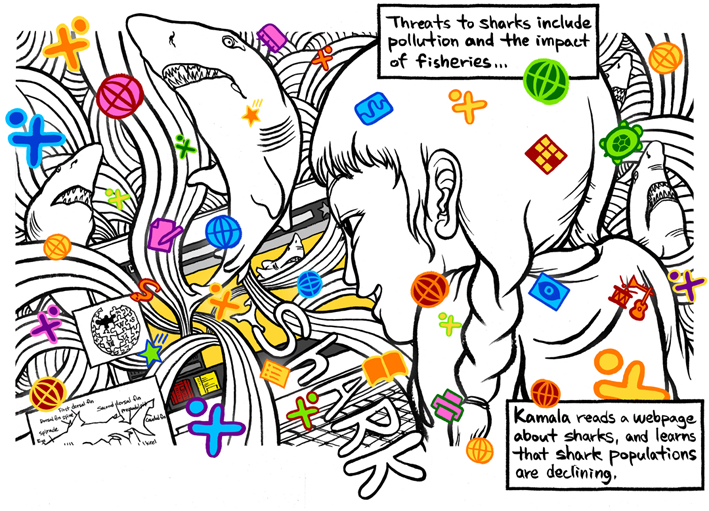 Threats to sharks include
pollution and the impact
of fisheries...
S
ShARK
First dorsal fin
Second dorsal fin
Dorsal fin spine
Caudal fin
Spiracle
Eye
Kamala reads a webpage
about sharks, and learns
that shark populations
are declining.